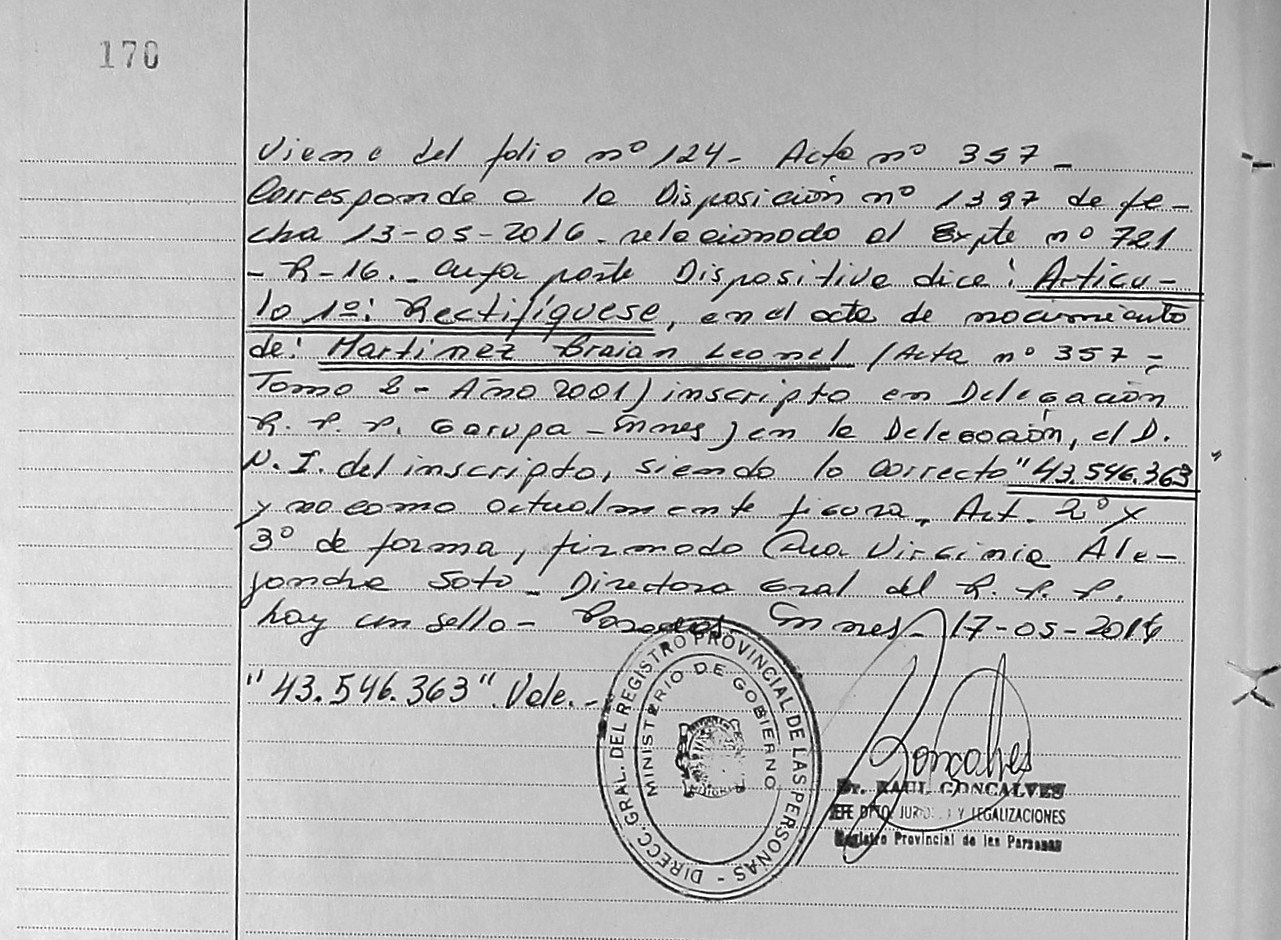 170
Viene del folio nº 124- Acta nº 357-
Corresponde a la Disposición nº 1397 de fe-
cha 13-05-2016. relacionado al Expte nº 721
-R-16.- cuya parte Dispositiva dice: Artícu-
lo 1º: Rectifíquese, en el acta de nacimiento
de: Martinez Braian Leonel (Acta nº 357-
Tomo 2- Año 2001) inscripto en Delegación
R. P. P. Garupa - Mnes) en la Delegación, el D.
N. I. del inscripto, siendo lo correcto "43.546.363"
y no como actualmente figura, Art. 2º y
3º de forma, firmado Dra Virginia Ale-
jandra Soto - Directora Gral del R. P. P.
hay un sello- Posadas Mnes- 17-05-2016
"43.546.363" Vale.-
DIRECC. GRAL. DEL REGISTRO PROVINCIAL DE LAS PERSONAS -
MINISTERIO DE GOBIERNO
Goncalves
Dr. RAUL GONCALVES
JEFE DPTO. Y LEGALIZACIONES
Registro Provincial de las Personas